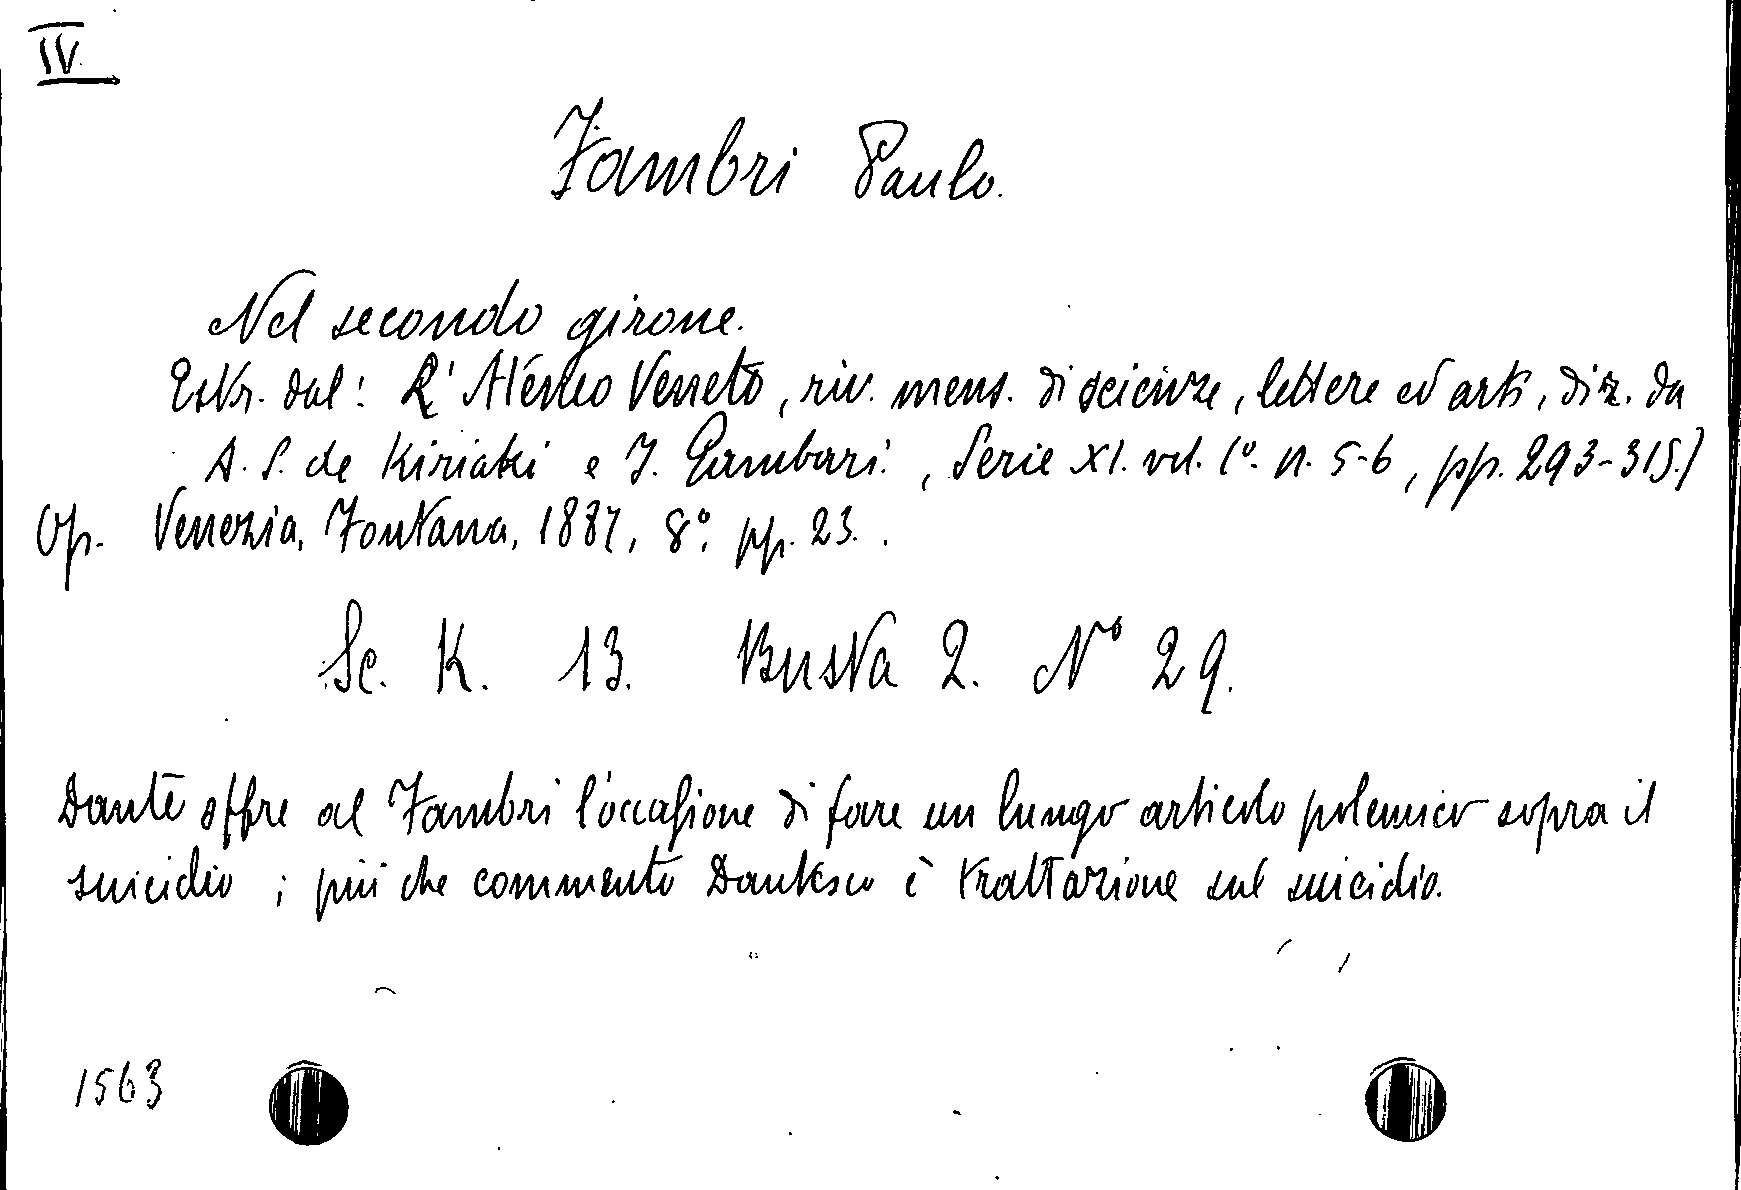 IV.
Fambri Paulo.
Nel secondo girone.
Estr. dal: L' Ateneo Veneto, riv. mens. di scienze, lettere ed arti, dir. da
A. S. de Kiriaki e F. Gambari., Serie XI. vol. 1º. n. 5-6, pp. 293-315.)
Op. Venezia, Fontana, 1887, 8º. pp. 23..
Sc. K. 13. Busta 2. Nº 29.
Dante offre al Fambri l'occasione di fare un lungo articolo polemico sopra il
suicidio; più che commento Dantesco è trattazione sul suicidio.
1563